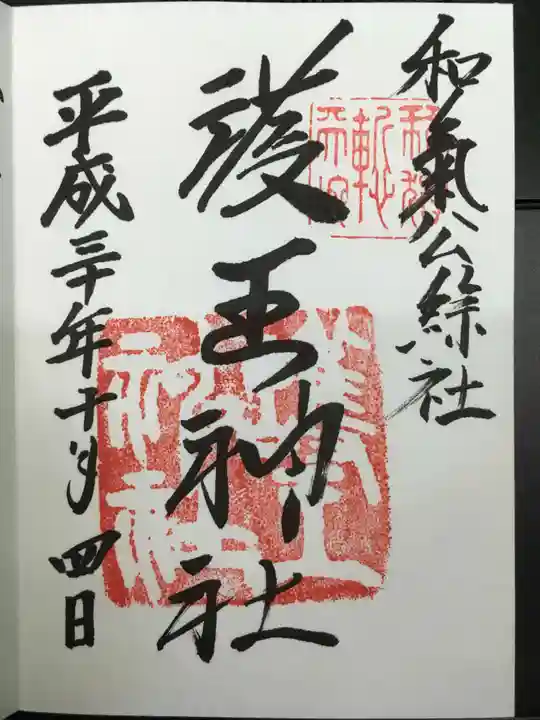 和氣公綜社
護王神社
平成三十年十月四日